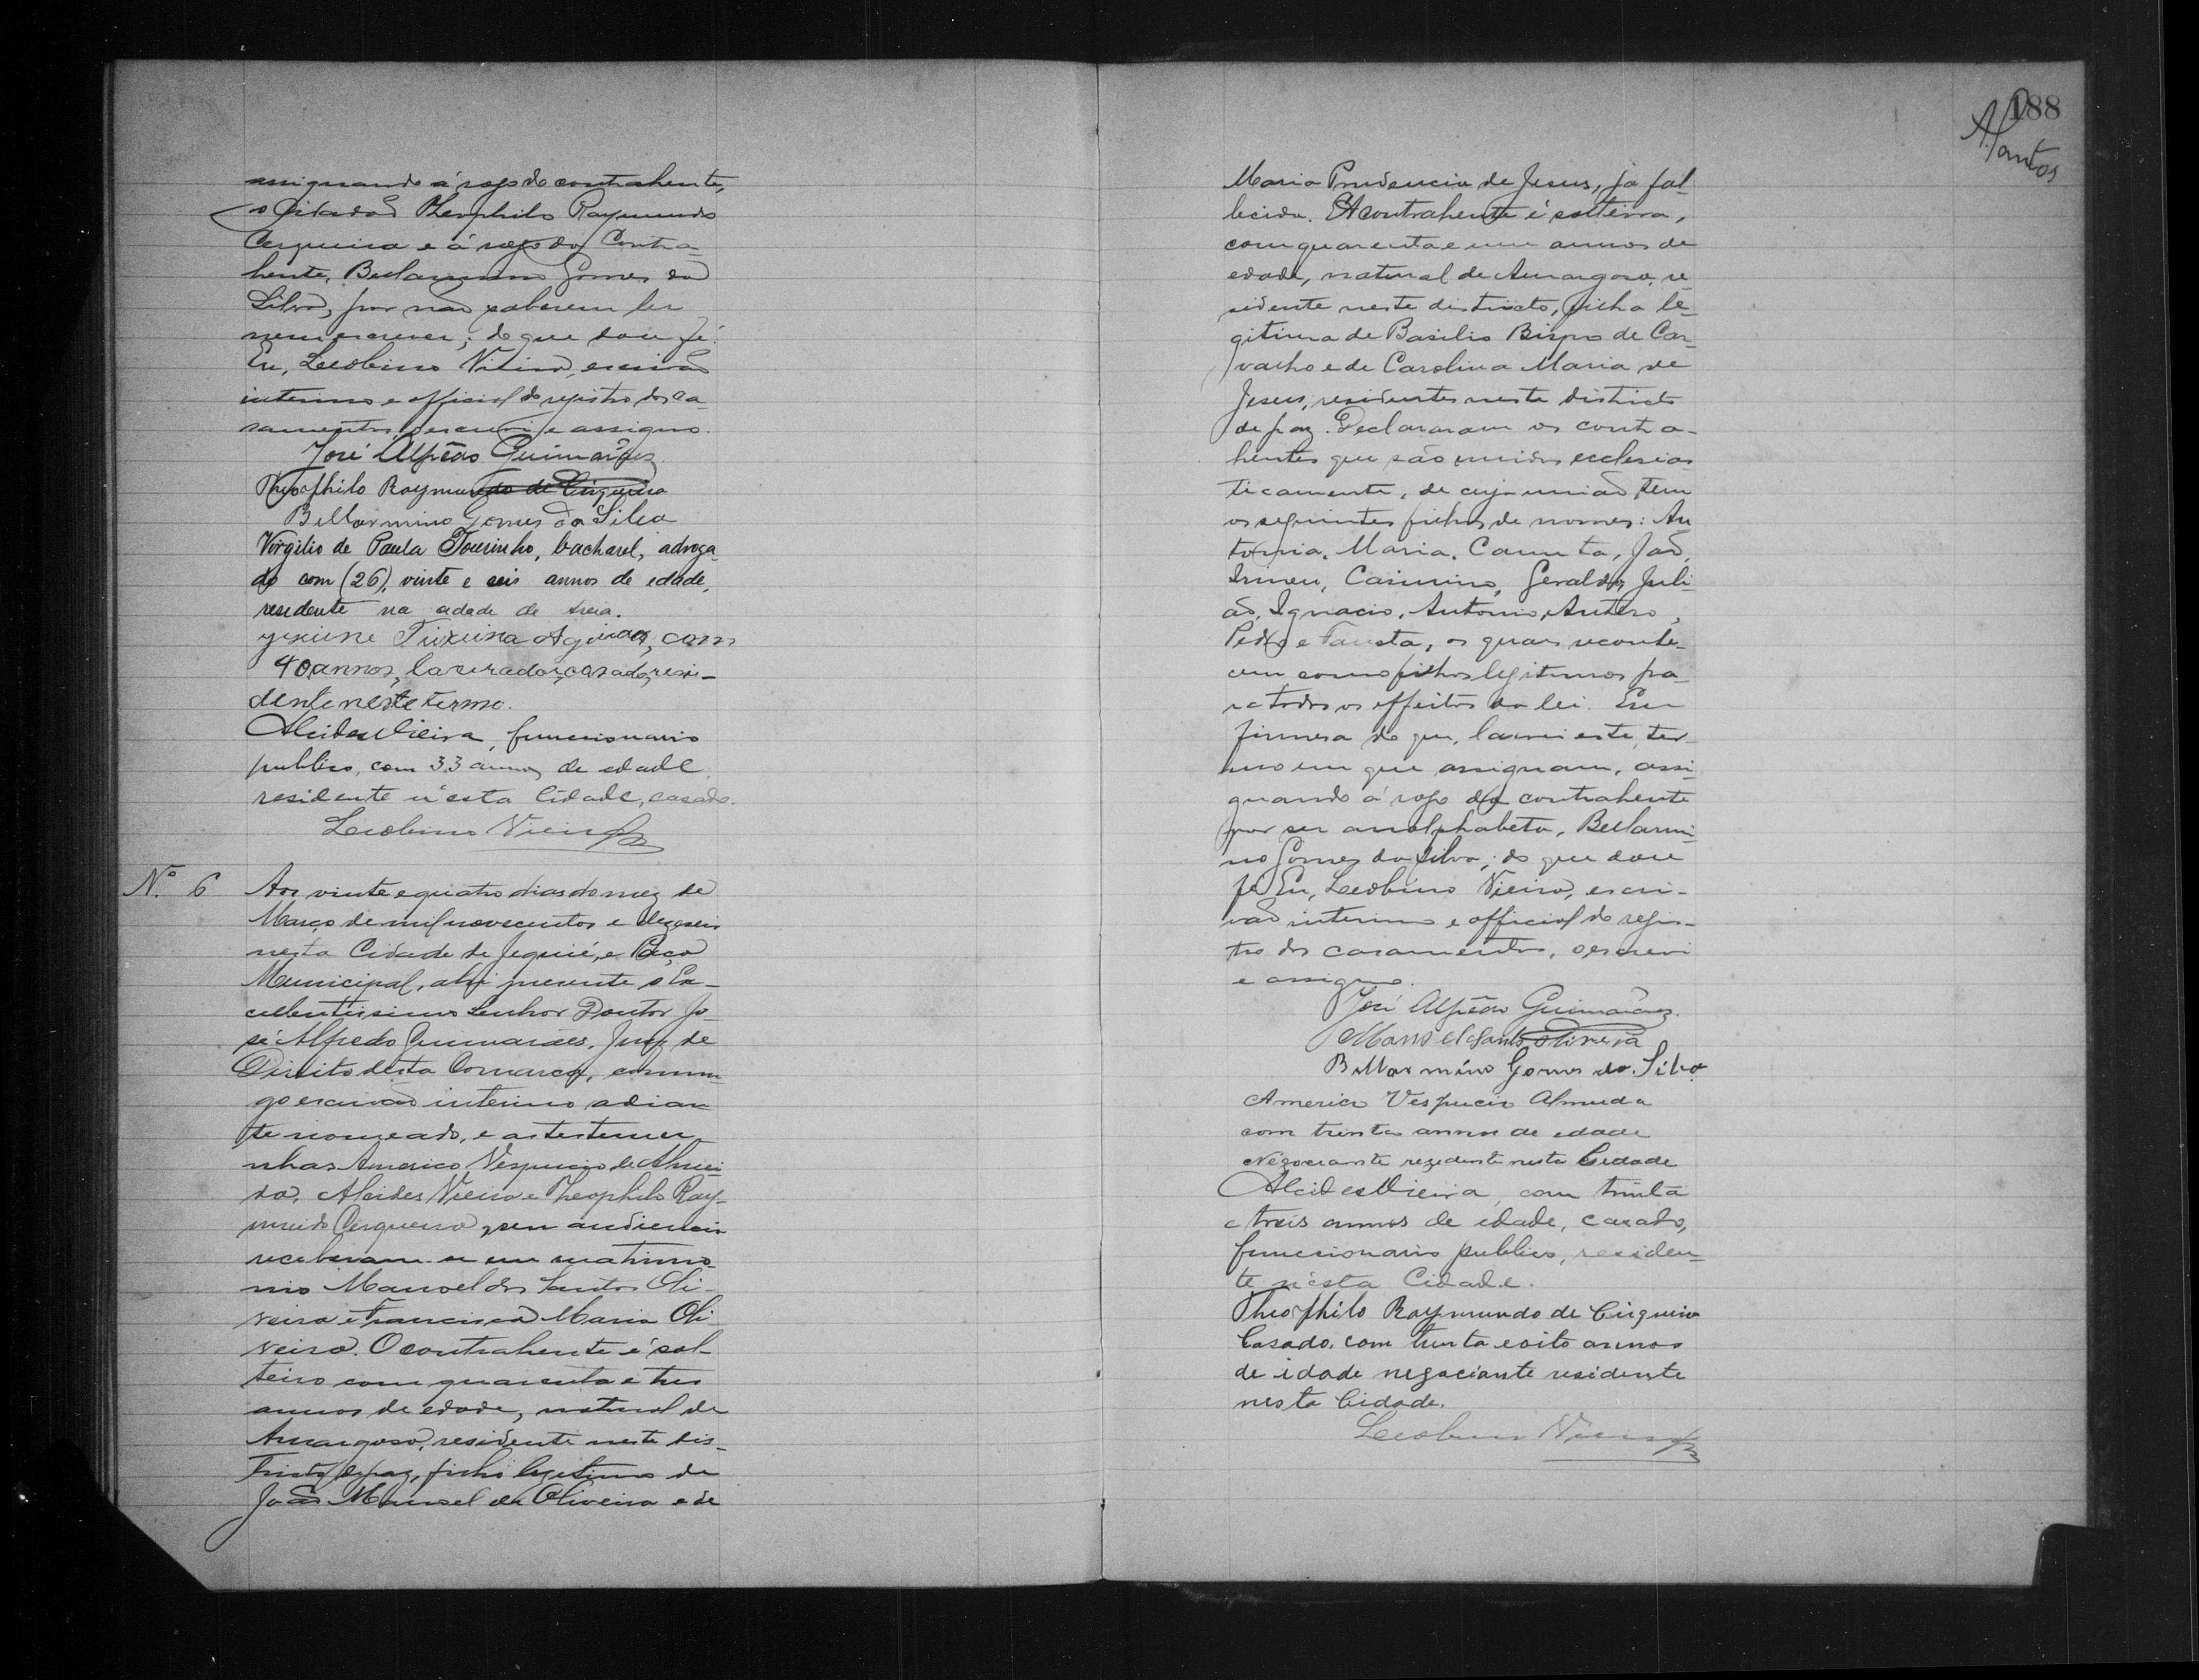 assignando á rogo do contrahente,
o citado Theophilo Raymundo
Cerqueira e á rogo da Contra-
hente, Bellarmino Gomes da
Silva, por não saberem ler
nem escrever; do que dou fé.
Eu, Leolino Vieira, escrivão
interino e official do registro dos ca-
samentos, o escrevi e assigno.
José Alfredo Guimarães
Theophilo Raymundo de Cirqueira
Bellarmino Gomes da Silva
Virgilio de Paula Tourinho, bacharel, advoga-
do com (26), vinte e seis annos de edade,
residente na cidade de Areia.
Teixeira Aguiar, com
40 annos, lavrador, casado, resi-
dente neste termo.
Alcides Vieira, funccionario
publico, com 33 annos de edade,
residente n'esta Cidade, casado.
Vieira
Nº 6
Aos vinte e quatro dias do mez de
Março de mil novecentos e dezeseis
nesta Cidade de Jequié, e Paço
Municipal, ahi presente o Ex-
cellentissimo Senhor Doutor Jo-
sé Alfredo Guimarães, Juiz de
Direito desta Comarca, commi-
go escrivão interino adian-
te nomeado, e as testemu-
nhas Americo Vespucio de Almei-
da, Alcides Vieira e Theophilo Ray-
mundo Cerqueira, em audiencia
receberam-se em matrimo-
nio Manoel dos Santos Oli-
veira e Francisca Maria Oli-
veira. O contrahente é sol-
teiro com quarenta e tres
annos de edade, natural de
Amargosa, residente neste dis-
tricto de paz, filho legitimo de
João Manoel de Oliveira e de
188
A. Santos
Maria Prudencia de Jesus, já fal-
lecida. A contrahente é solteira,
com quarenta e um annos de
edade, natural de Amargosa, re-
sidente neste districto, filha le-
gitima de Basilio Bispo de Car-
valho e de Carolina Maria de
Jesus, residentes neste districto
de paz. Declararam os contra-
hentes que são unidos ecclesias-
ticamente, de cuja união tem
os seguintes filhos de nomes: An-
tonia, Maria, João,
Irineu, Casimiro, Geraldo, Juli-
ão, Ignacio, Antonio, Antero,
Pedro e Fausta, os quaes reconhe-
cem como filhos legitimos pa-
ra todos os effeitos da lei. Em
firmesa do que, lavrei este ter-
mo em que assignam, assi-
gnando á rogo da contrahente
por ser analphabeta, Bellarmi-
no Gomes da Silva; do que dou
fé. Eu, Leolino Vieira, escri-
vão interino e official do regis-
tro dos casamentos, o escrevi
e assigno.
José Alfredo Guimarães.
Manoel dos Santos Oliveira
Bellarmino Gomes da Silva
Americo Vespucio Almeida
com trinta annos de edade
Negociante rezedente nesta Cidade
Alcides Vieira, com trinta
e treis annos de edade, casado,
funccionario publico, residen-
te n'esta Cidade.
Theophilo Raymundo de Cirqueira
Casado, com trinta e oito annos
de idade negociante residente
nesta Cidade.
Vieira